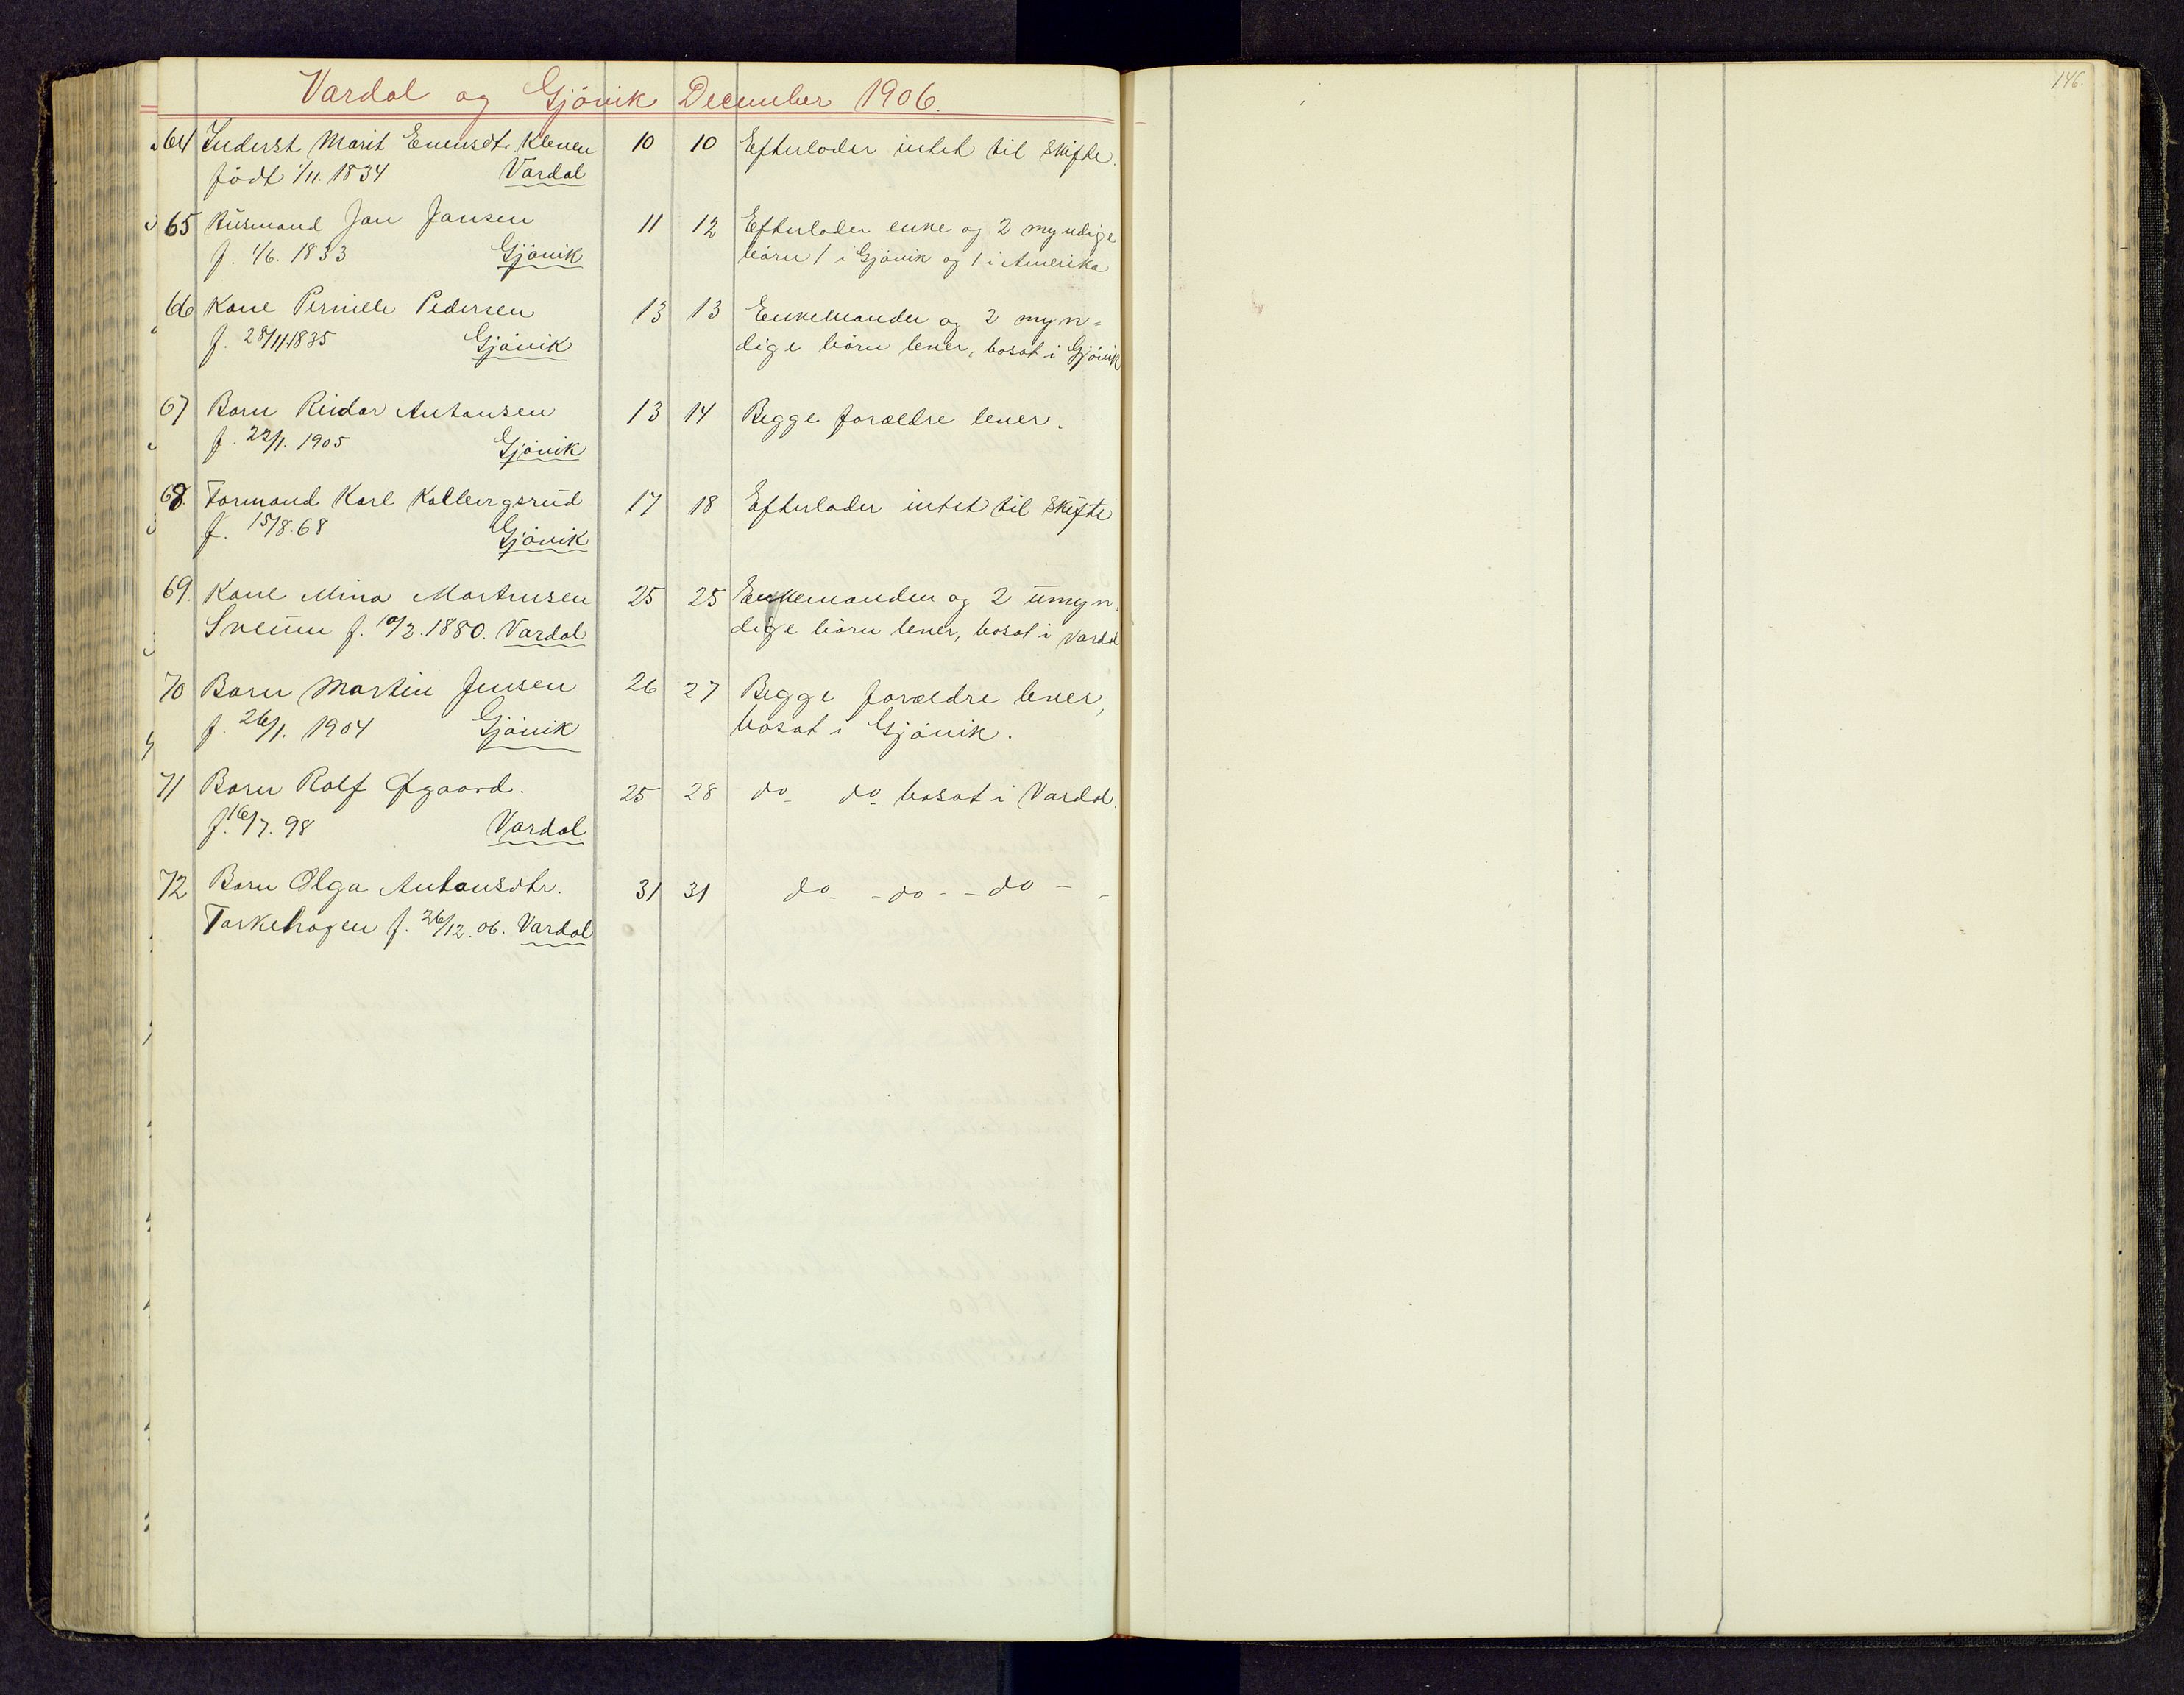 Vardal og Gjövik December 1906.
146.
64 Inderst Marit Evensdt. Kleven 10 10 Efterlader intet til skifte.
födt 1/11. 1834 Vardal
65 Husmand Jan Jansen 11 12 Efterlader enke og 2 myndige
f. 1/6. 1833 Gjövik börn 1 i Gjövik og 1 i Amerika
66 Kone Pernille Pedersen 13 13 Enkemanden og 2 myn=
f. 28/11 1835 Gjövik dige börn lever, bosat i Gjövik
67 Barn Reidar Antonsen 13 14 Begge forældre lever.
f. 22/1. 1905 Gjövik
68. Formand Karl Kolbergsrud 17 18 Efterlader intet til skifte
f. 15/8. 68 Gjövik
69. Kone Mina Martinsen 25 25 Enkemanden og 2 umyn=
Sveum f. 10/2. 1880. Vardal dige börn lever, bosat i Vardal
70 Barn Martin Jensen 26 27 Begge forældre lever,
f. 26/1. 1904 Gjövik bosat i Gjövik.
71 Barn Rolf Øgaard. 25 28 do do bosat i Vardal.
f. 16/7. 98 Vardal
72 Barn Olga Antonsdtr. 31 31 do - do - - do -
f. 26/12. 06. Vardal